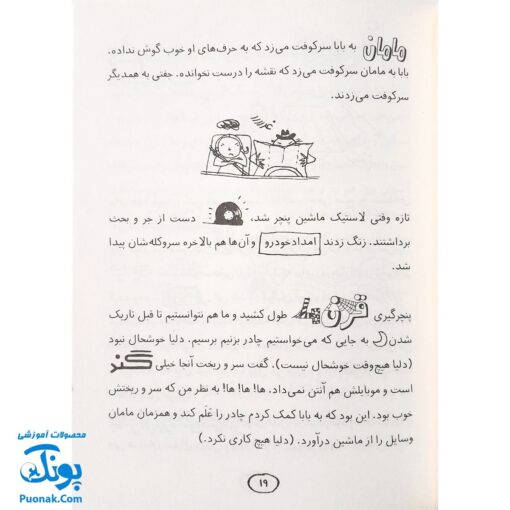 مامان به بابا سرکوفت می‌زد که به حرف‌های او خوب گوش نداده.
بابا به مامان سرکوفت می‌زد که نقشه را درست نخوانده. جفتی به همدیگر
سرکوفت می‌زدند.
غررررر
تازه وقتی لاستیک ماشین پنچر شد، دست از جر و بحث
برداشتند. زنگ زدند امداد خودرو و آن‌ها هم بالاخره سروکله‌شان پیدا
شد.
پنچرگیری قرن‌ها طول کشید و ما هم نتوانستیم تا قبل تاریک
شدن به جایی که می‌خواستیم چادر بزنیم برسیم. دلیا خوشحال نبود
(دلیا هیچ‌وقت خوشحال نیست). گفت سر و ریخت آنجا خیلی گند
است و موبایلش هم آنتن نمی‌داد. ها! ها! ها! به نظر من که سر و ریختش
خوب بود. این بود که به بابا کمک کردم چادر را عَلَم کند و همزمان مامان
وسایل را از ماشین درآورد. (دلیا هیچ کاری نکرد.)
۱۹
محصولات آموزشی
پونک
Puonak.Com